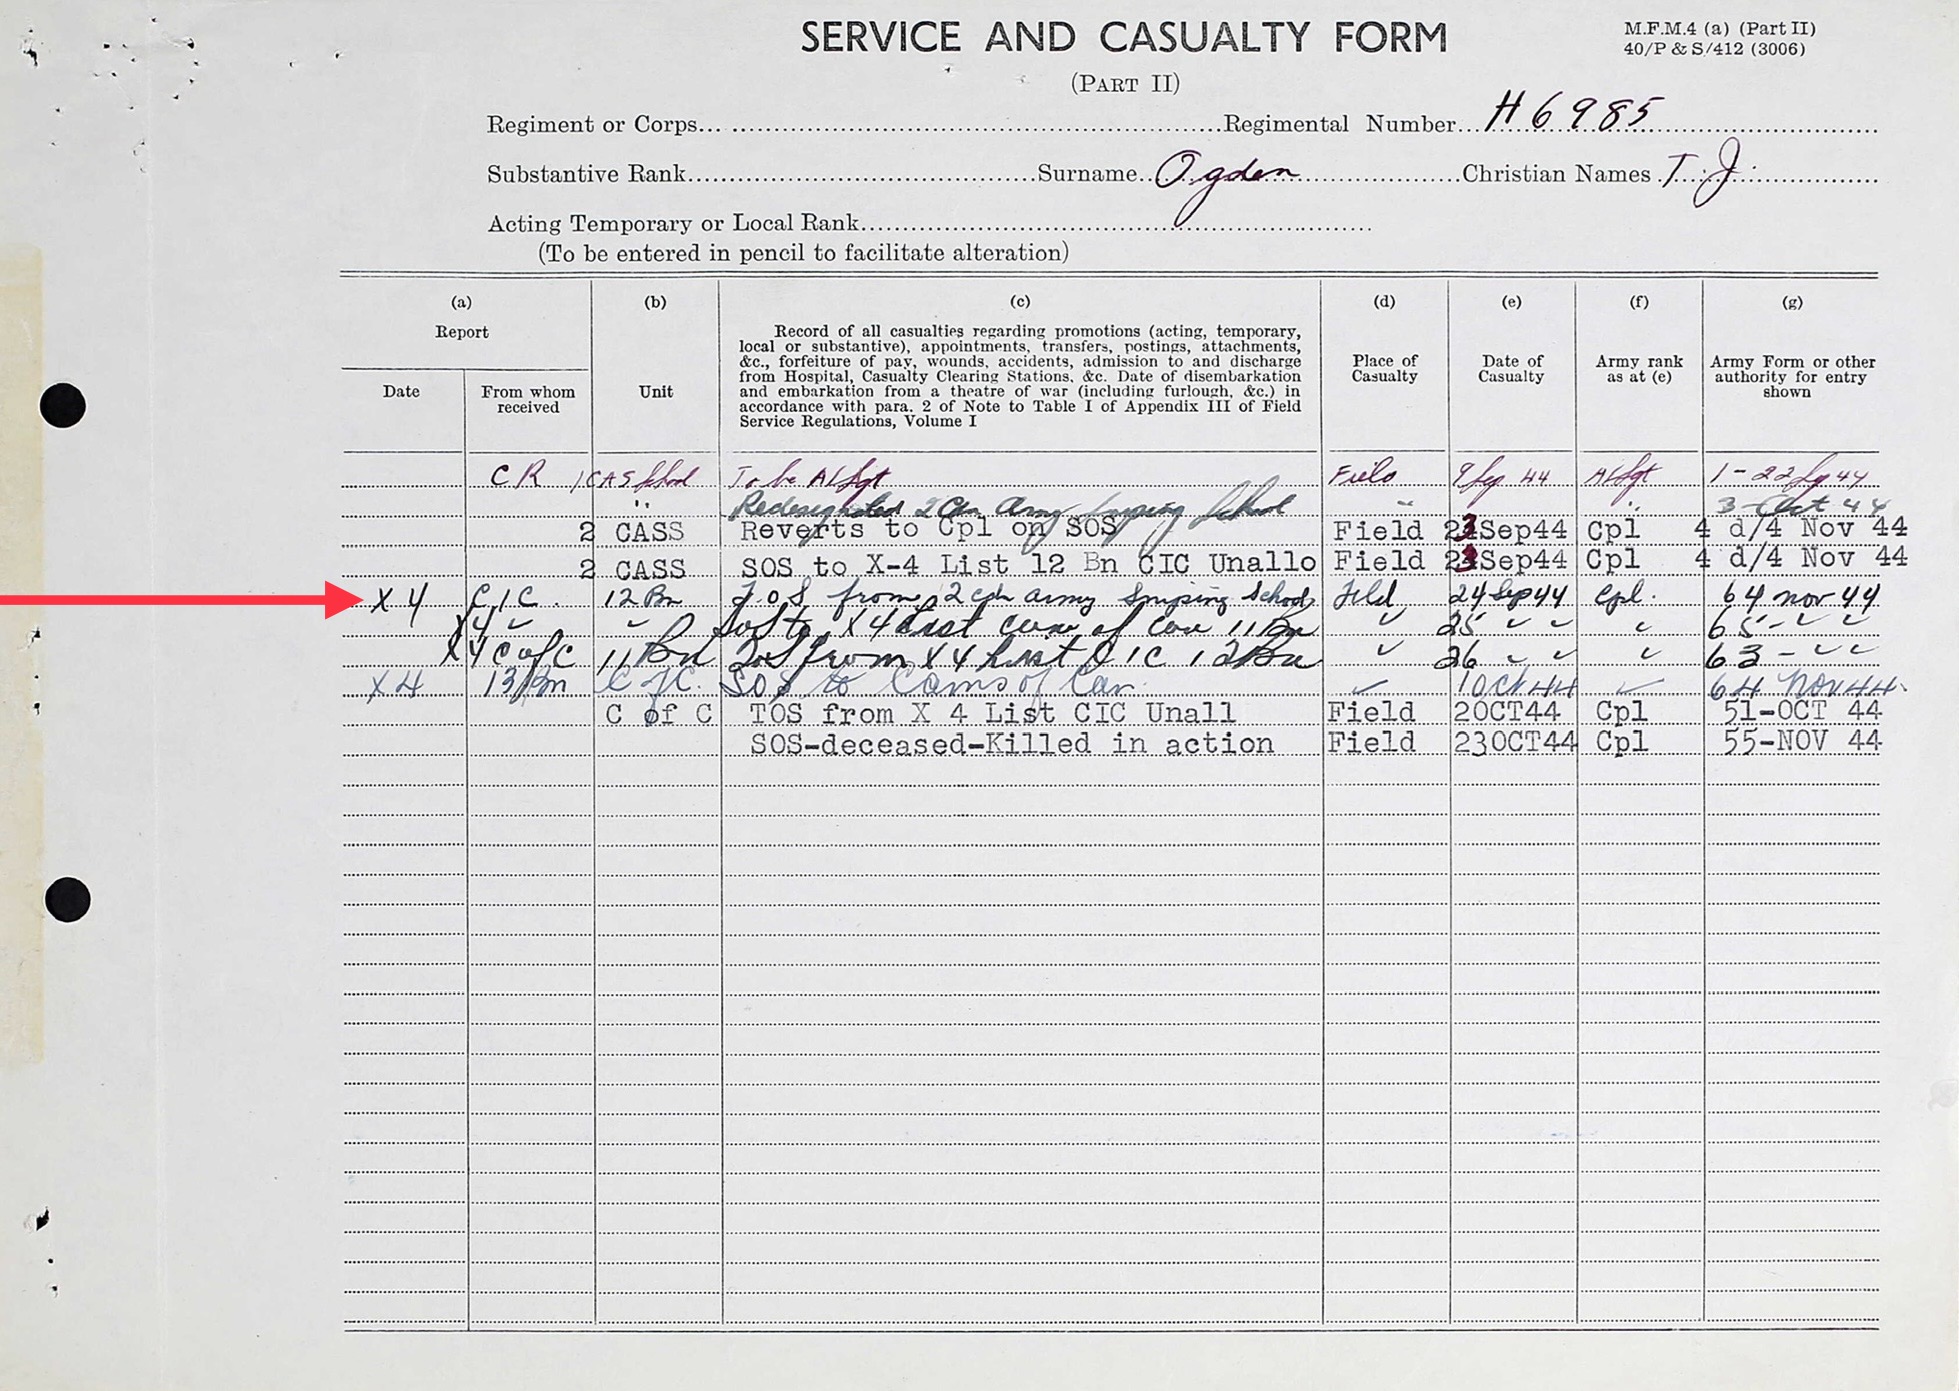 SERVICE AND CASUALTY FORM
M.F.M.4 (a) (Part II)
40/P & S/412 (3006)
(PART II)
Regiment or Corps... Regimental Number... H 6985
Substantive Rank... Surname.. Ogden Christian Names . T. J.
Acting Temporary or Local Rank...
(To be entered in pencil to facilitate alteration)
(a) (b) (c) (d) (e) (f) (g)
Report
Date
From whom
received
Unit
Record of all casualties regarding promotions (acting, temporary,
local or substantive), appointments, transfers, postings, attachments,
&c., forfeiture of pay, wounds, accidents, admission to and discharge
from Hospital, Casualty Clearing Stations, &c. Date of disembarkation
and embarkation from a theatre of war (including furlough, &c.) in
accordance with para. 2 of Note to Table I of Appendix III of Field
Service Regulations, Volume I
Place of
Casualty
Date of
Casualty
Army rank
as at (e)
Army Form or other
authority for entry
shown
CR 1 CAS School To be A/Sgt Field 9 Sep 44 A/Sgt 1-22 Sep 44
" Redesignated 2 Cdn Army Sniping School " " 3-Oct 44
2 CASS Reverts to Cpl on SOS Field 23Sep44 Cpl 4 d/4 Nov 44
2 CASS SOS to X-4 List 12 Bn CIC Unallo Field 23Sep44 Cpl 4 d/4 Nov 44
X4 CIC. 12 Bn T.O.S from 2 cdn army Sniping School Field 24 Sep 44 Cpl. 64 nov 44
X4 " " SOS to X4 List 11 Bn " 25 " " " 65- " "
X4 C of C 11 Bn TOS from X4 List CIC 12 Bn " 26 " " " 63 - " "
X4 13 Bn C of C. SOS to Cams of Can. " 1 Oct 44 " 64 Nov 44.
C of C TOS from X 4 List CIC Unall Field 2OCT44 Cpl 51-OCT 44
SOS-deceased-Killed in action Field 23OCT44 Cpl 55-NOV 44